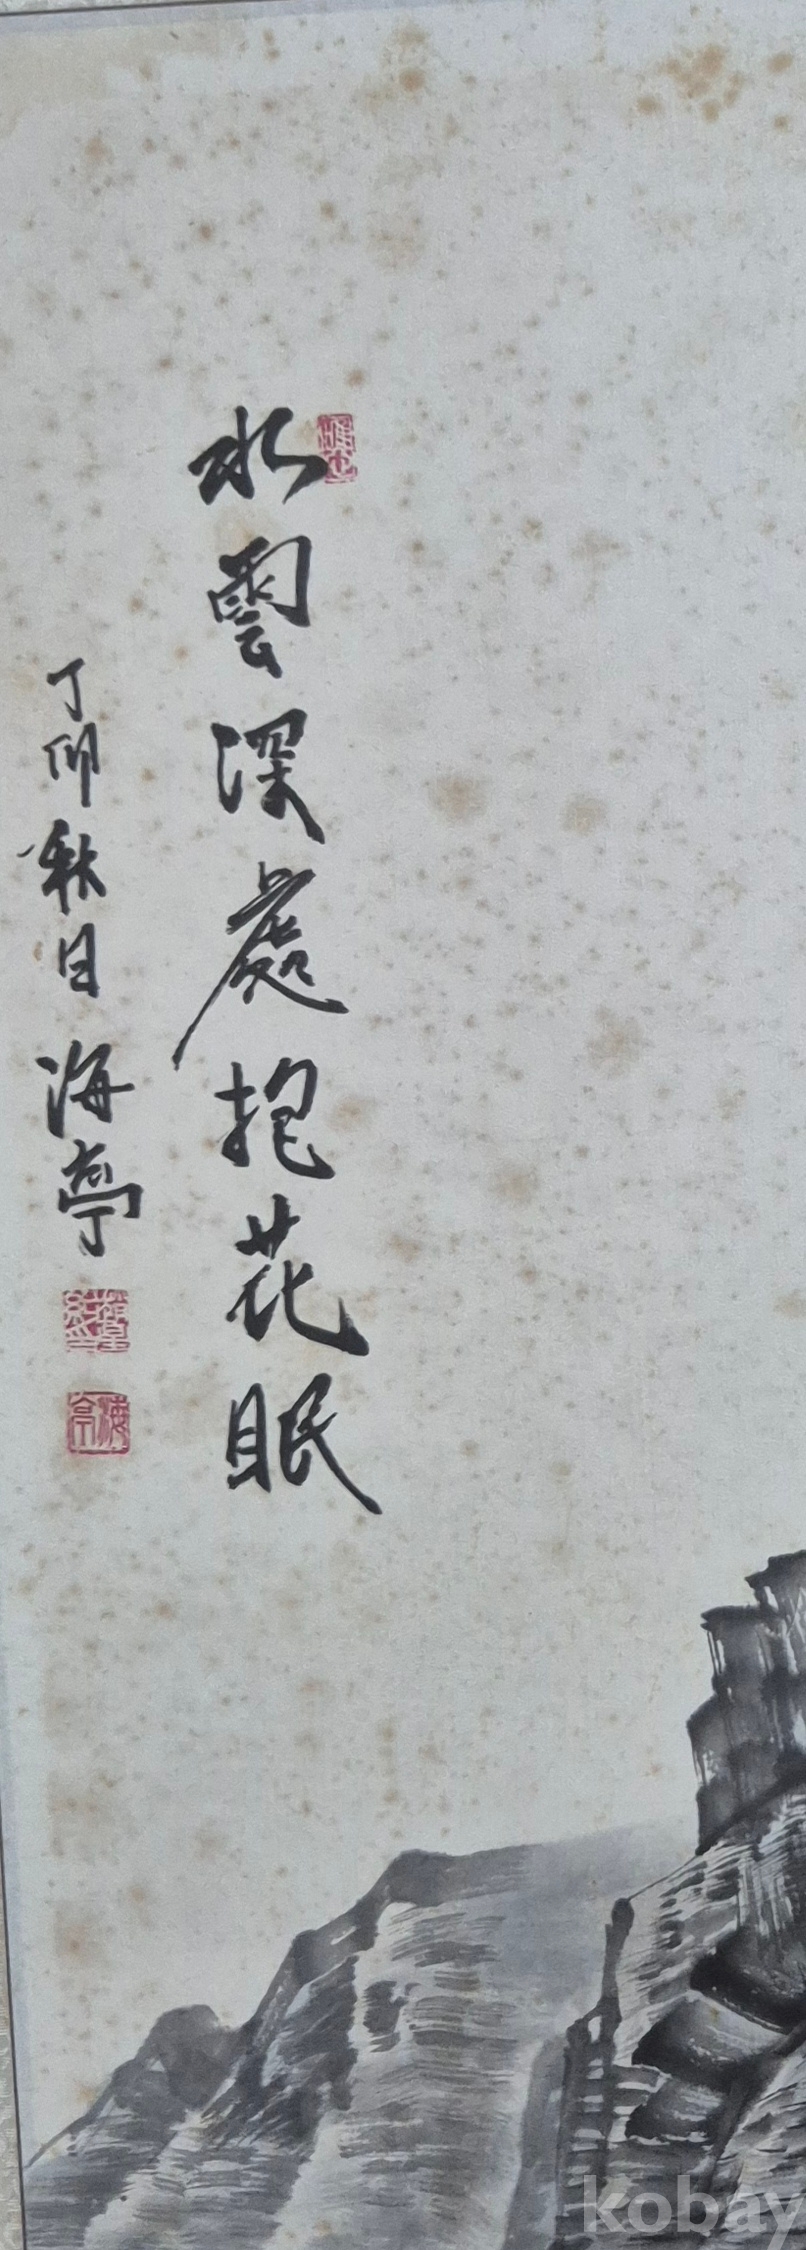 水雲深處抱花眠
丁卯秋日 海亭
海亭
kobay